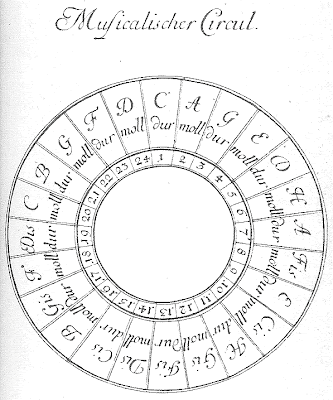 Musicalischer Circul.
C dur 1
A moll 2
G dur 3
E moll 4
D dur 5
H moll 6
A dur 7
Fis moll 8
E dur 9
Cis moll 10
H dur 11
Gis moll 12
Fis dur 13
Dis moll 14
Cis dur 15
B moll 16
Gis dur 17
F moll 18
Dis dur 19
C moll 20
B dur 21
G moll 22
F dur 23
D moll 24